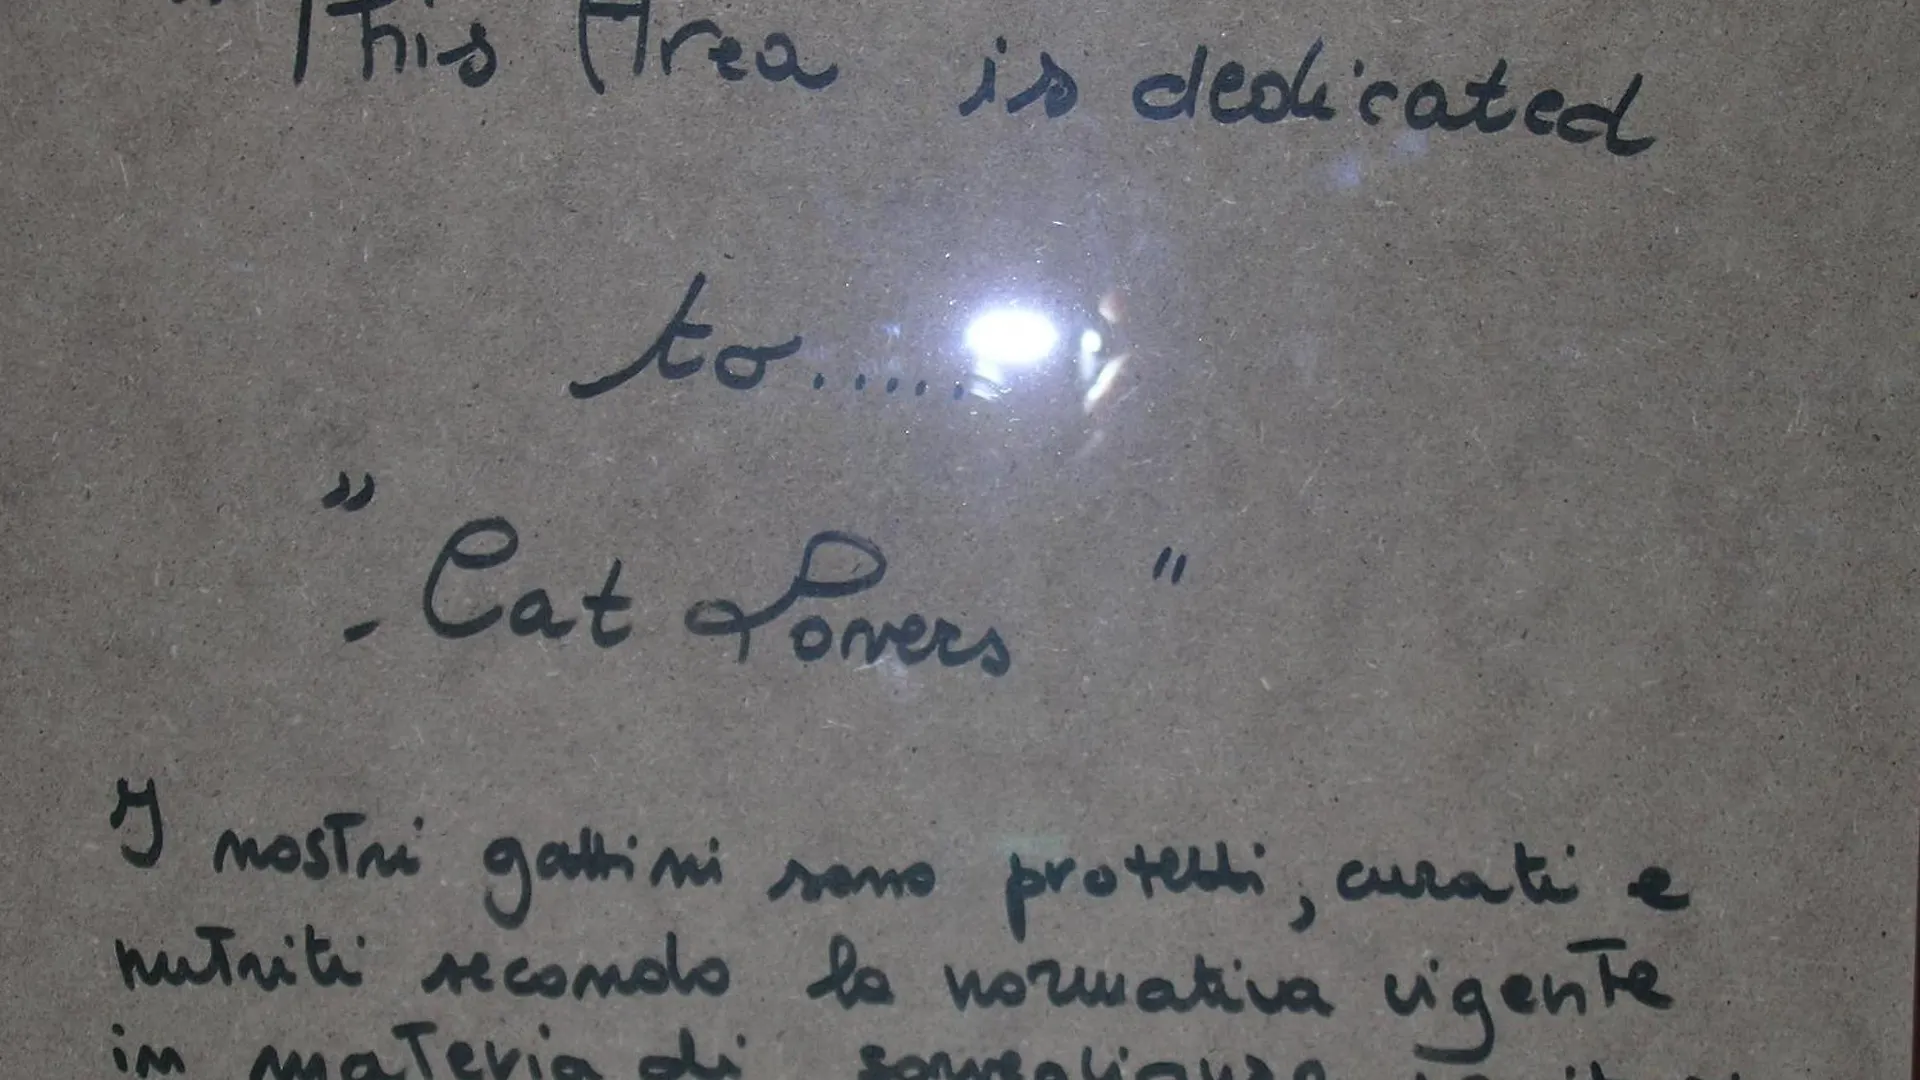 "This Area is dedicated
to......
"
- Cat Lovers "
I nostri gattini sono protetti, curati e
nutriti secondo la normativa vigente
in materia di sorveglianza